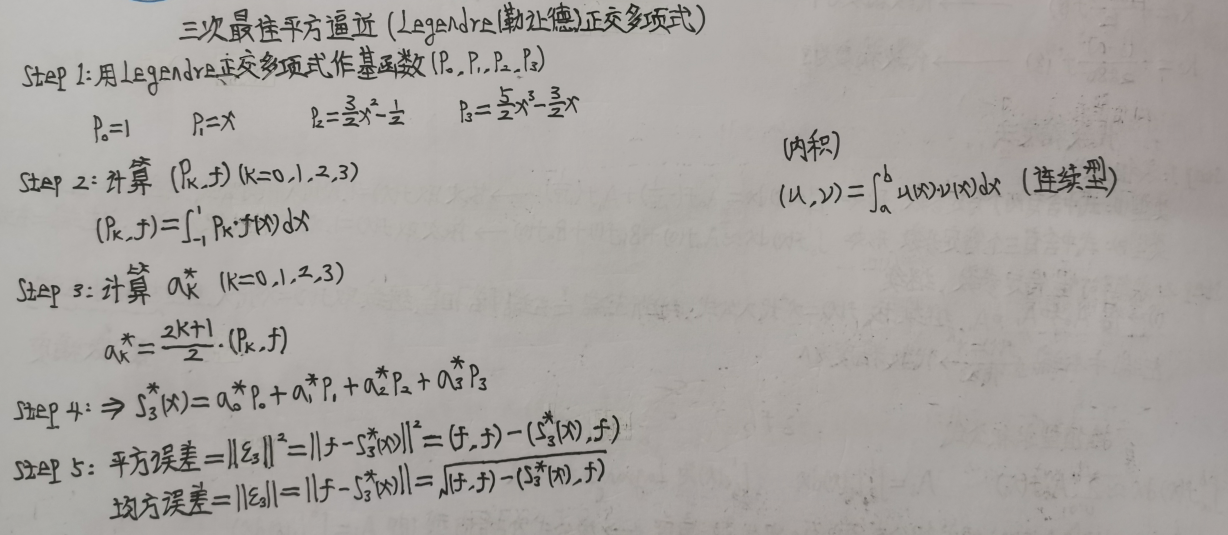 三次最佳平方逼近(Legendre(勒让德)正交多项式)
Step 1:用Legendre正交多项式作基函数(P₀,P₁,P₂,P₃)
P₀=1 P₁=x P₂=3/2x²-1/2 P₃=5/2x³-3/2x
Step 2:计算 (Pₖ,f)(k=0,1,2,3)
(Pₖ,f)=∫₋₁¹Pₖ·f(x)dx
(内积)
(u,v)=∫ₐᵇu(x)·v(x)dx (连续型)
Step 3:计算 aₖ* (k=0,1,2,3)
aₖ*=(2k+1)/2·(Pₖ,f)
Step 4:⇒S₃*(x)=a₀*P₀+a₁*P₁+a₂*P₂+a₃*P₃
Step 5:平方误差=||ε₃||²=||f-S₃*(x)||²=(f,f)-(S₃*(x),f)
均方误差=||ε₃||=||f-S₃*(x)||=√((f,f)-(S₃*(x),f))